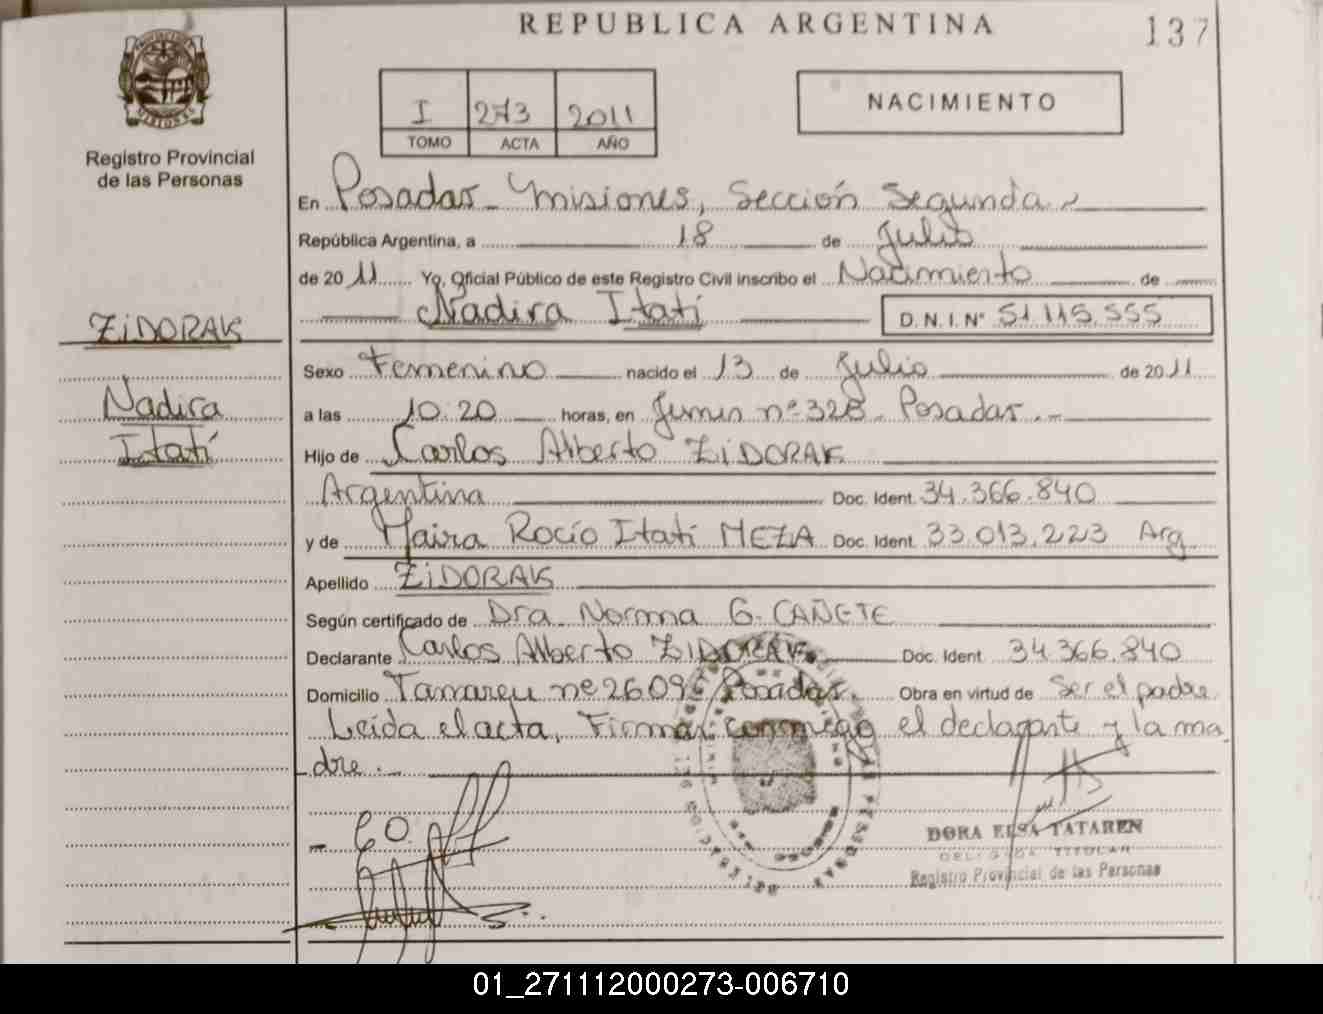 REPUBLICA ARGENTINA
137
PROVINCIA
MISIONES
Registro Provincial
de las Personas
I 273 2011
TOMO ACTA AÑO
NACIMIENTO
En Posadas - Misiones, Sección Segunda
República Argentina, a 18 de Julio
de 2011 Yo, Oficial Público de este Registro Civil inscribo el Nacimiento de
Nadira Itatí D.N.I.Nº 51.115.555
ZIDORAK
Nadira
Itatí
Sexo Femenino nacido el 13 de Julio de 2011
a las 10:20 horas, en Junin nº 328 - Posadas.-
Hijo de Carlos Alberto ZIDORAK
Argentina Doc. Ident. 34.366.840
y de Maira Rocío Itatí MEZA Doc. Ident. 33.013.223 Arg.
Apellido ZIDORAK
Según certificado de Dra. Norma G. CAÑETE
Declarante Carlos Alberto ZIDORAK Doc. Ident 34.366.840
Domicilio Tamareu nº 2609 Posadas. Obra en virtud de Ser el padre
Leída el acta, Firman conmigo el declarante y la ma
dre.-
DORA ELSA TATAREN
DELEGADA TITULAR
Registro Provincial de las Personas
01_271112000273-006710